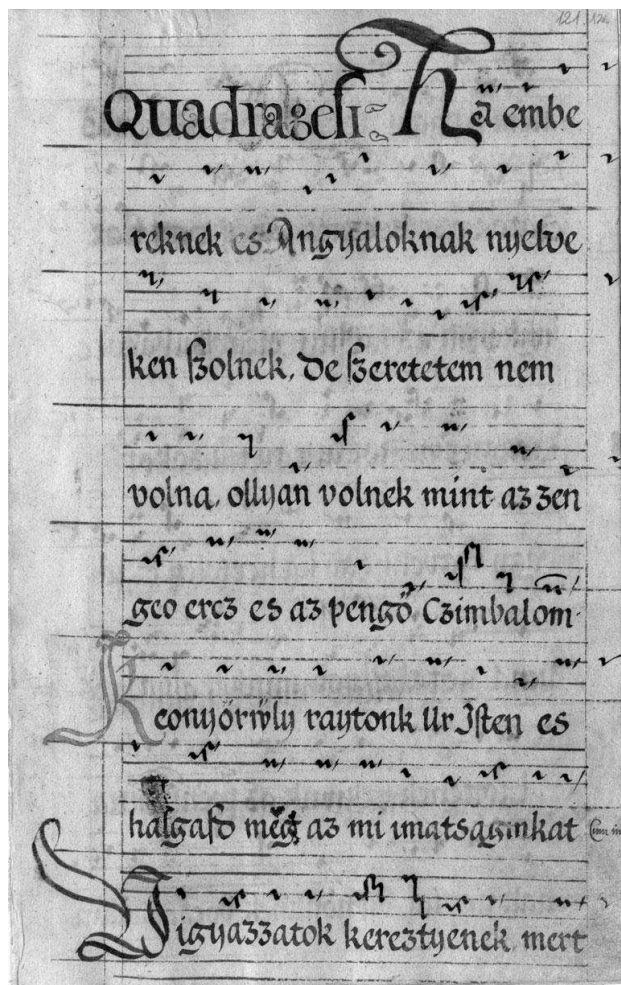 121
Quadragesi: Ha embe
reknek es Angyaloknak nyelve
ken szolnek, de szeretetem nem
volna, ollyan volnek mint az zen
geo ercz es az pengő Czimbalom.
Keonyörüly raytonk Ur Isten es
halgasd meg az mi imatsaginkat
Vigyazzatok kereztyenek mert